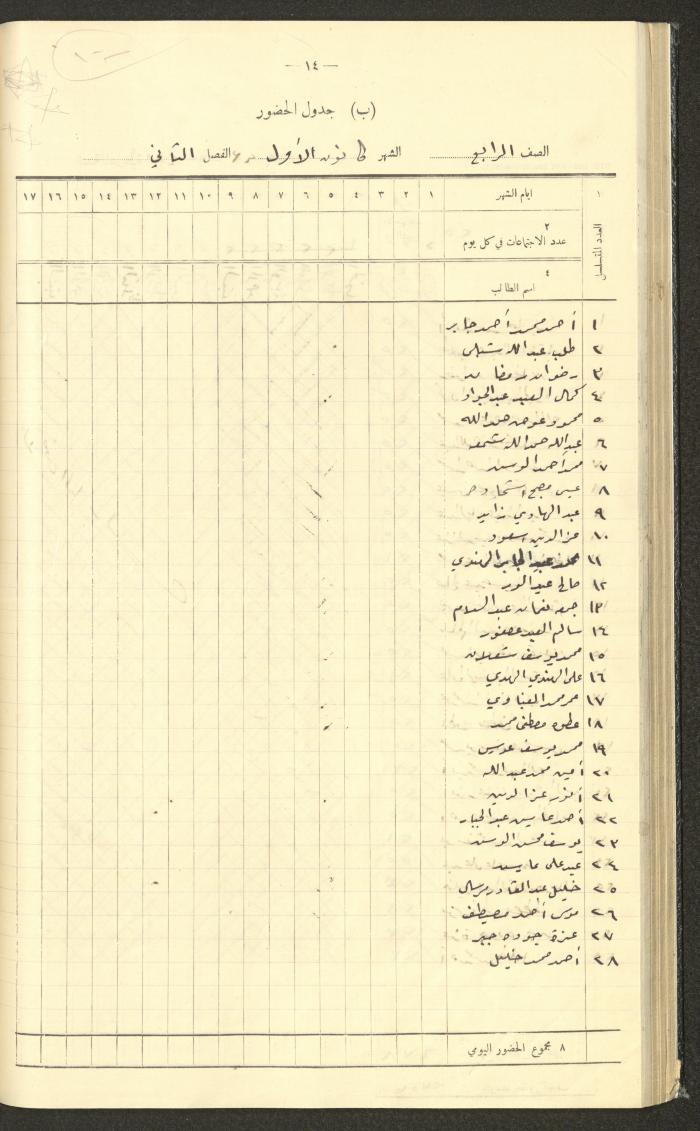 ١٠٠
— ١٤ —
(ب) جدول الحضور
الصف الرابع الشهر كانون الأول الفصل الثاني
١ ايام الشهر ١ ٢ ٣ ٤ ٥ ٦ ٧ ٨ ٩ ١٠ ١١ ١٢ ١٣ ١٤ ١٥ ١٦ ١٧
العدد المتسلسل
٢
عدد الاجتماعات في كل يوم
٤
اسم الطالب
١ أحمد محمد أحمد جابر
٢ طلب عبد الله شبلي
٣ رضوان رمضان
٤ كمال العبد عبد الجواد
٥ محمود عوض حمد الله
٦ عبد الله حمد الله
٧ محمد أحمد
٨ عيسى مصلح
٩ عبد الهادي زايد
١٠ عز الدين سعود
١١ محمد عبد الجابر الهندي
١٢ صالح عبد
١٣ جمعه نعمان عبد السلام
١٤ سالم العبد عصفور
١٥ محمد يوسف شعلان
١٦ علي الهندي الهندي
١٧ محمد العناوي
١٨ عطوه مصطفى محمد
١٩ محمد يوسف عويس
٢٠ أمين محمد عبد الله
٢١ أنور عز الدين
٢٢ أحمد عبد الجبار
٢٣ يوسف محسن
٢٤ عبد علي
٢٥ خليل عبد القادر مرسال
٢٦ موسى أحمد مصيطف
٢٧ عزة جوده جبر
٢٨ أحمد محمد خليل
٨ مجموع الحضور اليومي